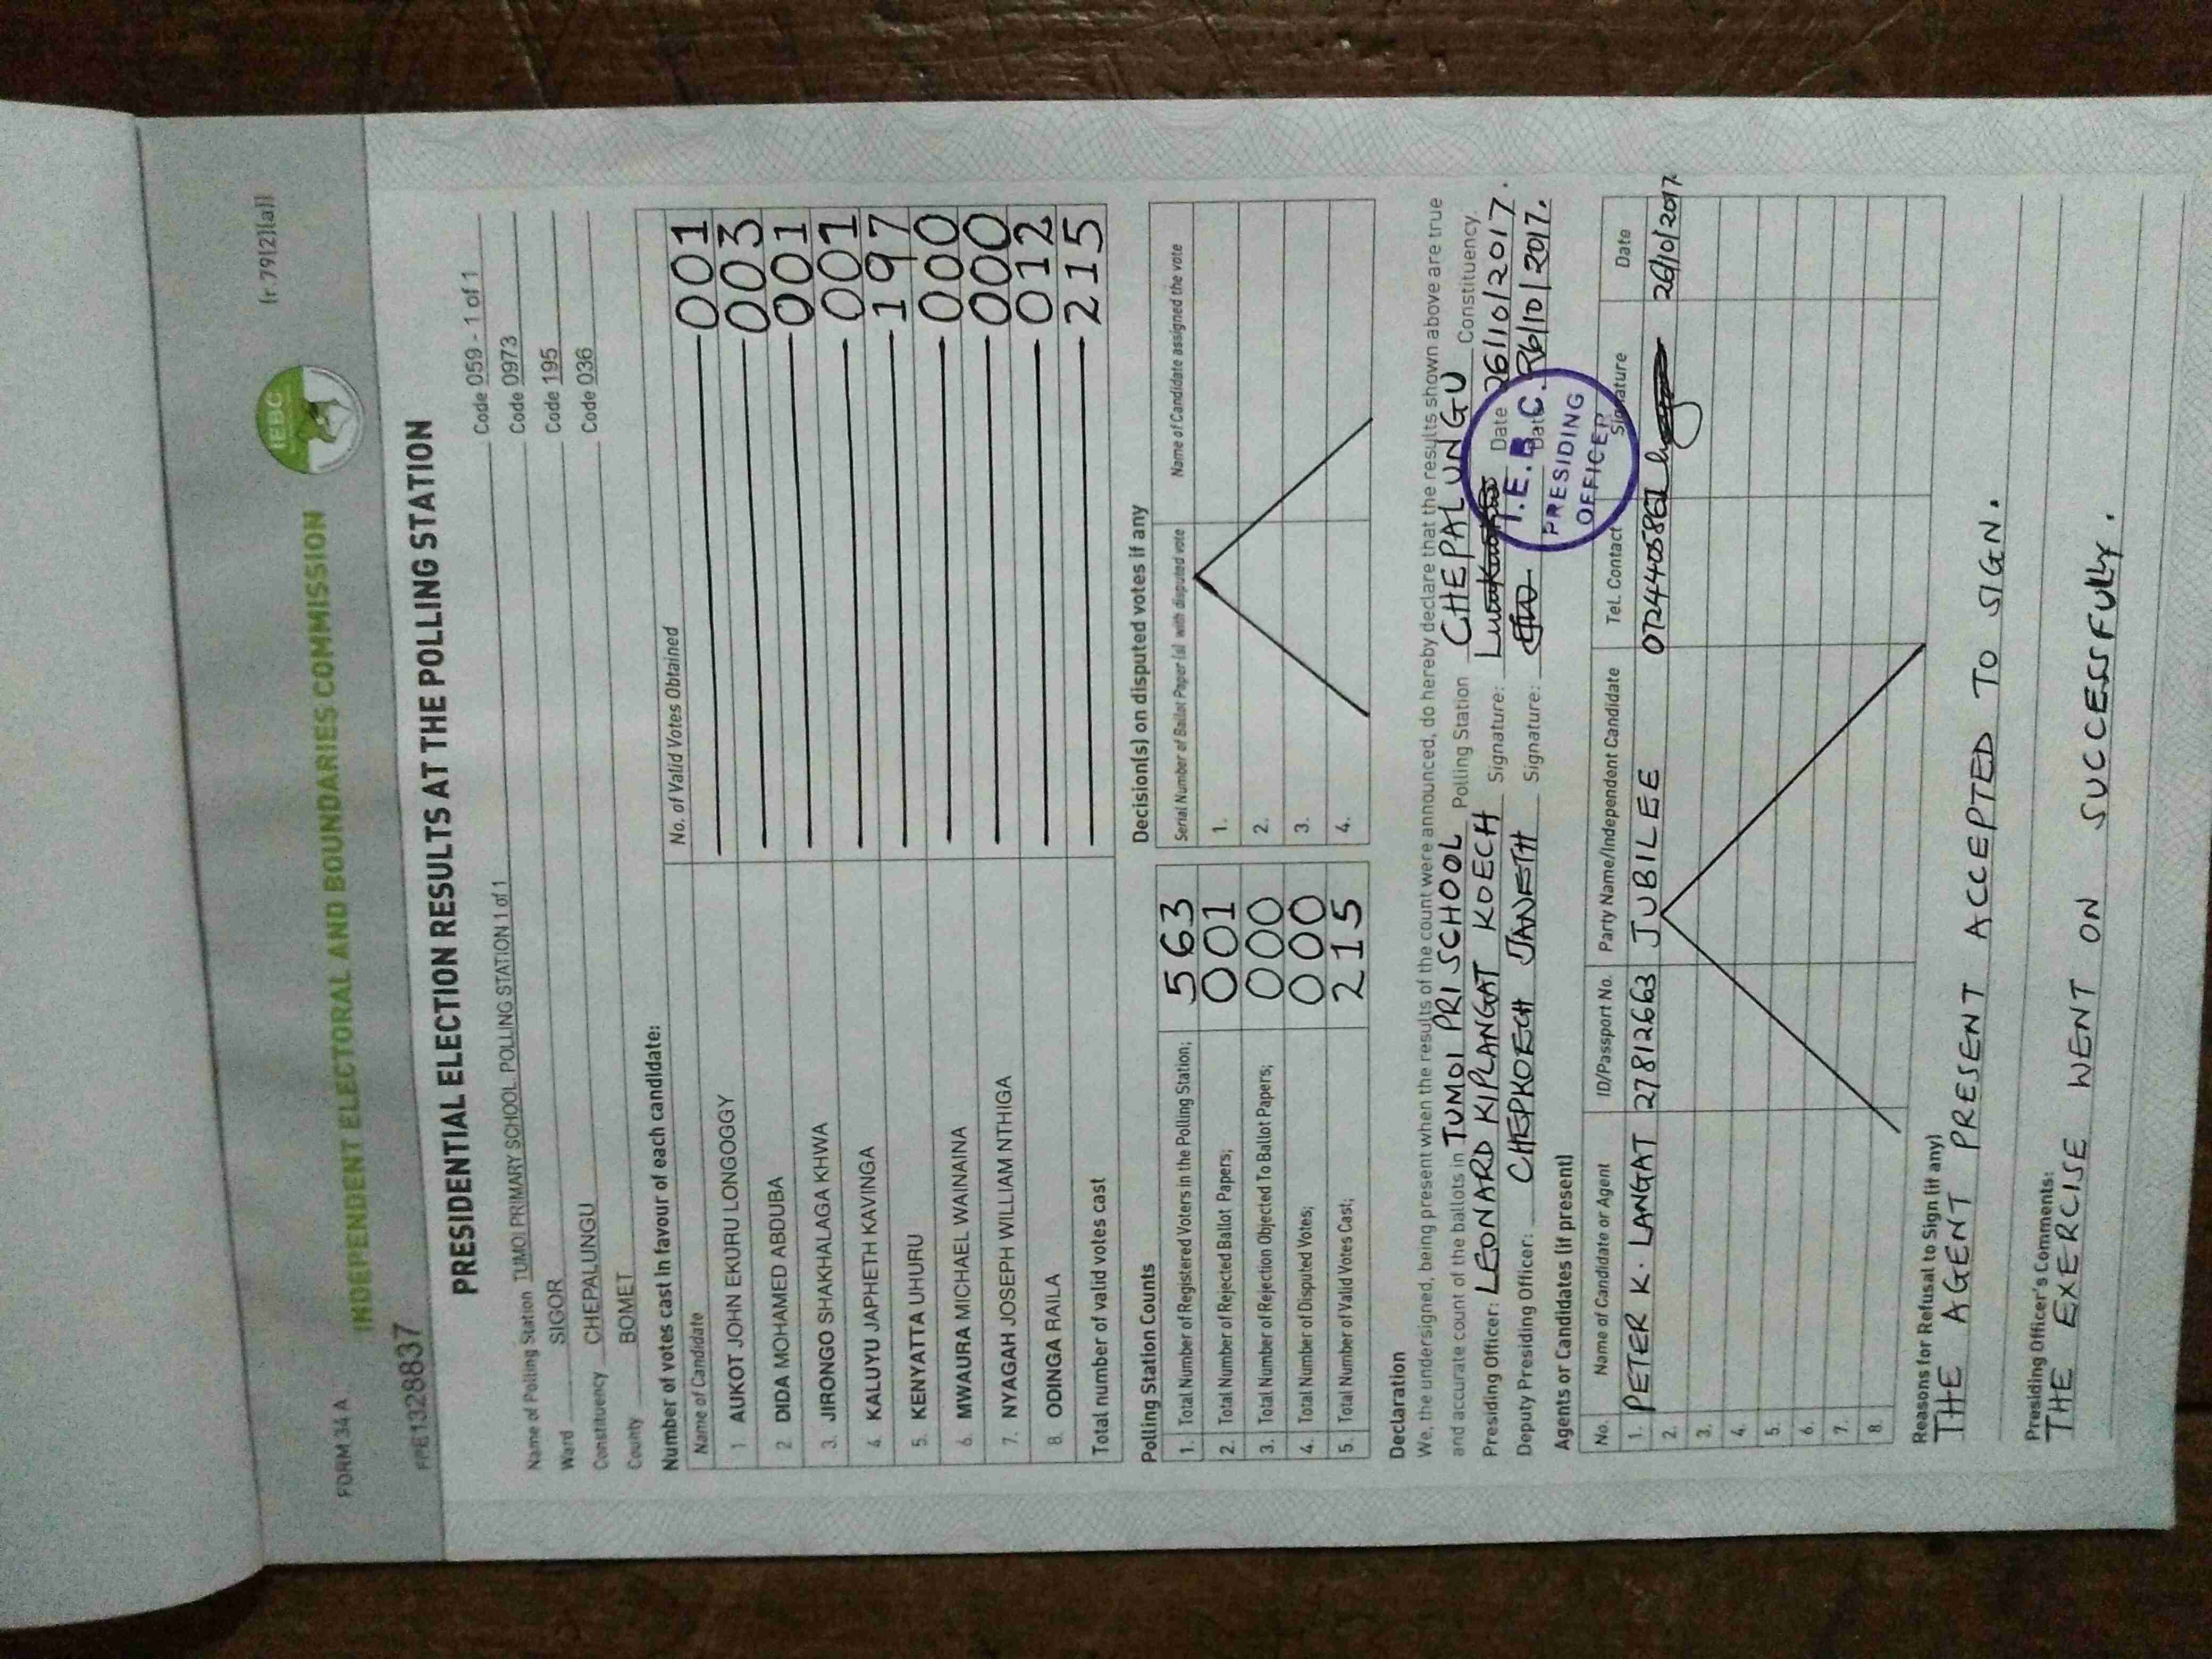 FORM 34 A
(r.79(2)(a))
IEBC
INDEPENDENT ELECTORAL AND BOUNDARIES COMMISSION
PRESIDENTIAL ELECTION RESULTS AT THE POLLING STATION
Name of Polling Station TUMOI PRIMARY SCHOOL. POLLING STATION 1 of 1 Code 059 - 1 of 1
Ward SIGOR Code 0973
Constituency CHEPALUNGU Code 195
County BOMET Code 036
Number of votes cast in favour of each candidate:
Name of Candidate No. of Valid Votes Obtained
1. AUKOT JOHN EKURU LONGOGGY 001
2 DIDA MOHAMED ABDUBA 003
3. JIRONGO SHAKHALAGA KHWA 001
4. KALUYU JAPHETH KAVINGA 001
5. KENYATTA UHURU 197
6. MWAURA MICHAEL WAINAINA 000
7. NYAGAH JOSEPH WILLIAM NTHIGA 000
8. ODINGA RAILA 012
Total number of valid votes cast 215
Polling Station Counts
1. Total Number of Registered Voters in the Polling Station; 563
2. Total Number of Rejected Ballot Papers; 001
3. Total Number of Rejection Objected To Ballot Papers; 000
4. Total Number of Disputed Votes; 000
5. Total Number of Valid Votes Cast; 215
Decision(s) on disputed votes if any
Serial Number of Ballot Paper (s) with disputed vote Name of Candidate assigned the vote
1.
2.
3.
4.
Declaration
We, the undersigned, being present when the results of the count were announced, do hereby declare that the results shown above are true
and accurate count of the ballots in TUMOI PRI SCHOOL Polling Station CHEPALUNGU Constituency.
Presiding Officer: LEONARD KIPLANGAT KOECH Signature: Date 26/10/2017.
Deputy Presiding Officer: CHEPKOECH JANETH Signature: Date 26/10/2017.
I.E.B.C.
PRESIDING
OFFICER
Agents or Candidates (if present)
No. Name of Candidate or Agent ID/Passport No. Party Name/Independent Candidate Tel. Contact Signature Date
1. PETER K. LANGAT 27812663 JUBILEE 26/10/2017
2.
3.
4.
5.
6.
7.
8.
Reasons for Refusal to Sign (if any)
THE AGENT PRESENT ACCEPTED TO SIGN.
Presiding Officer's Comments:
THE EXERCISE WENT ON SUCCESSFULLY.